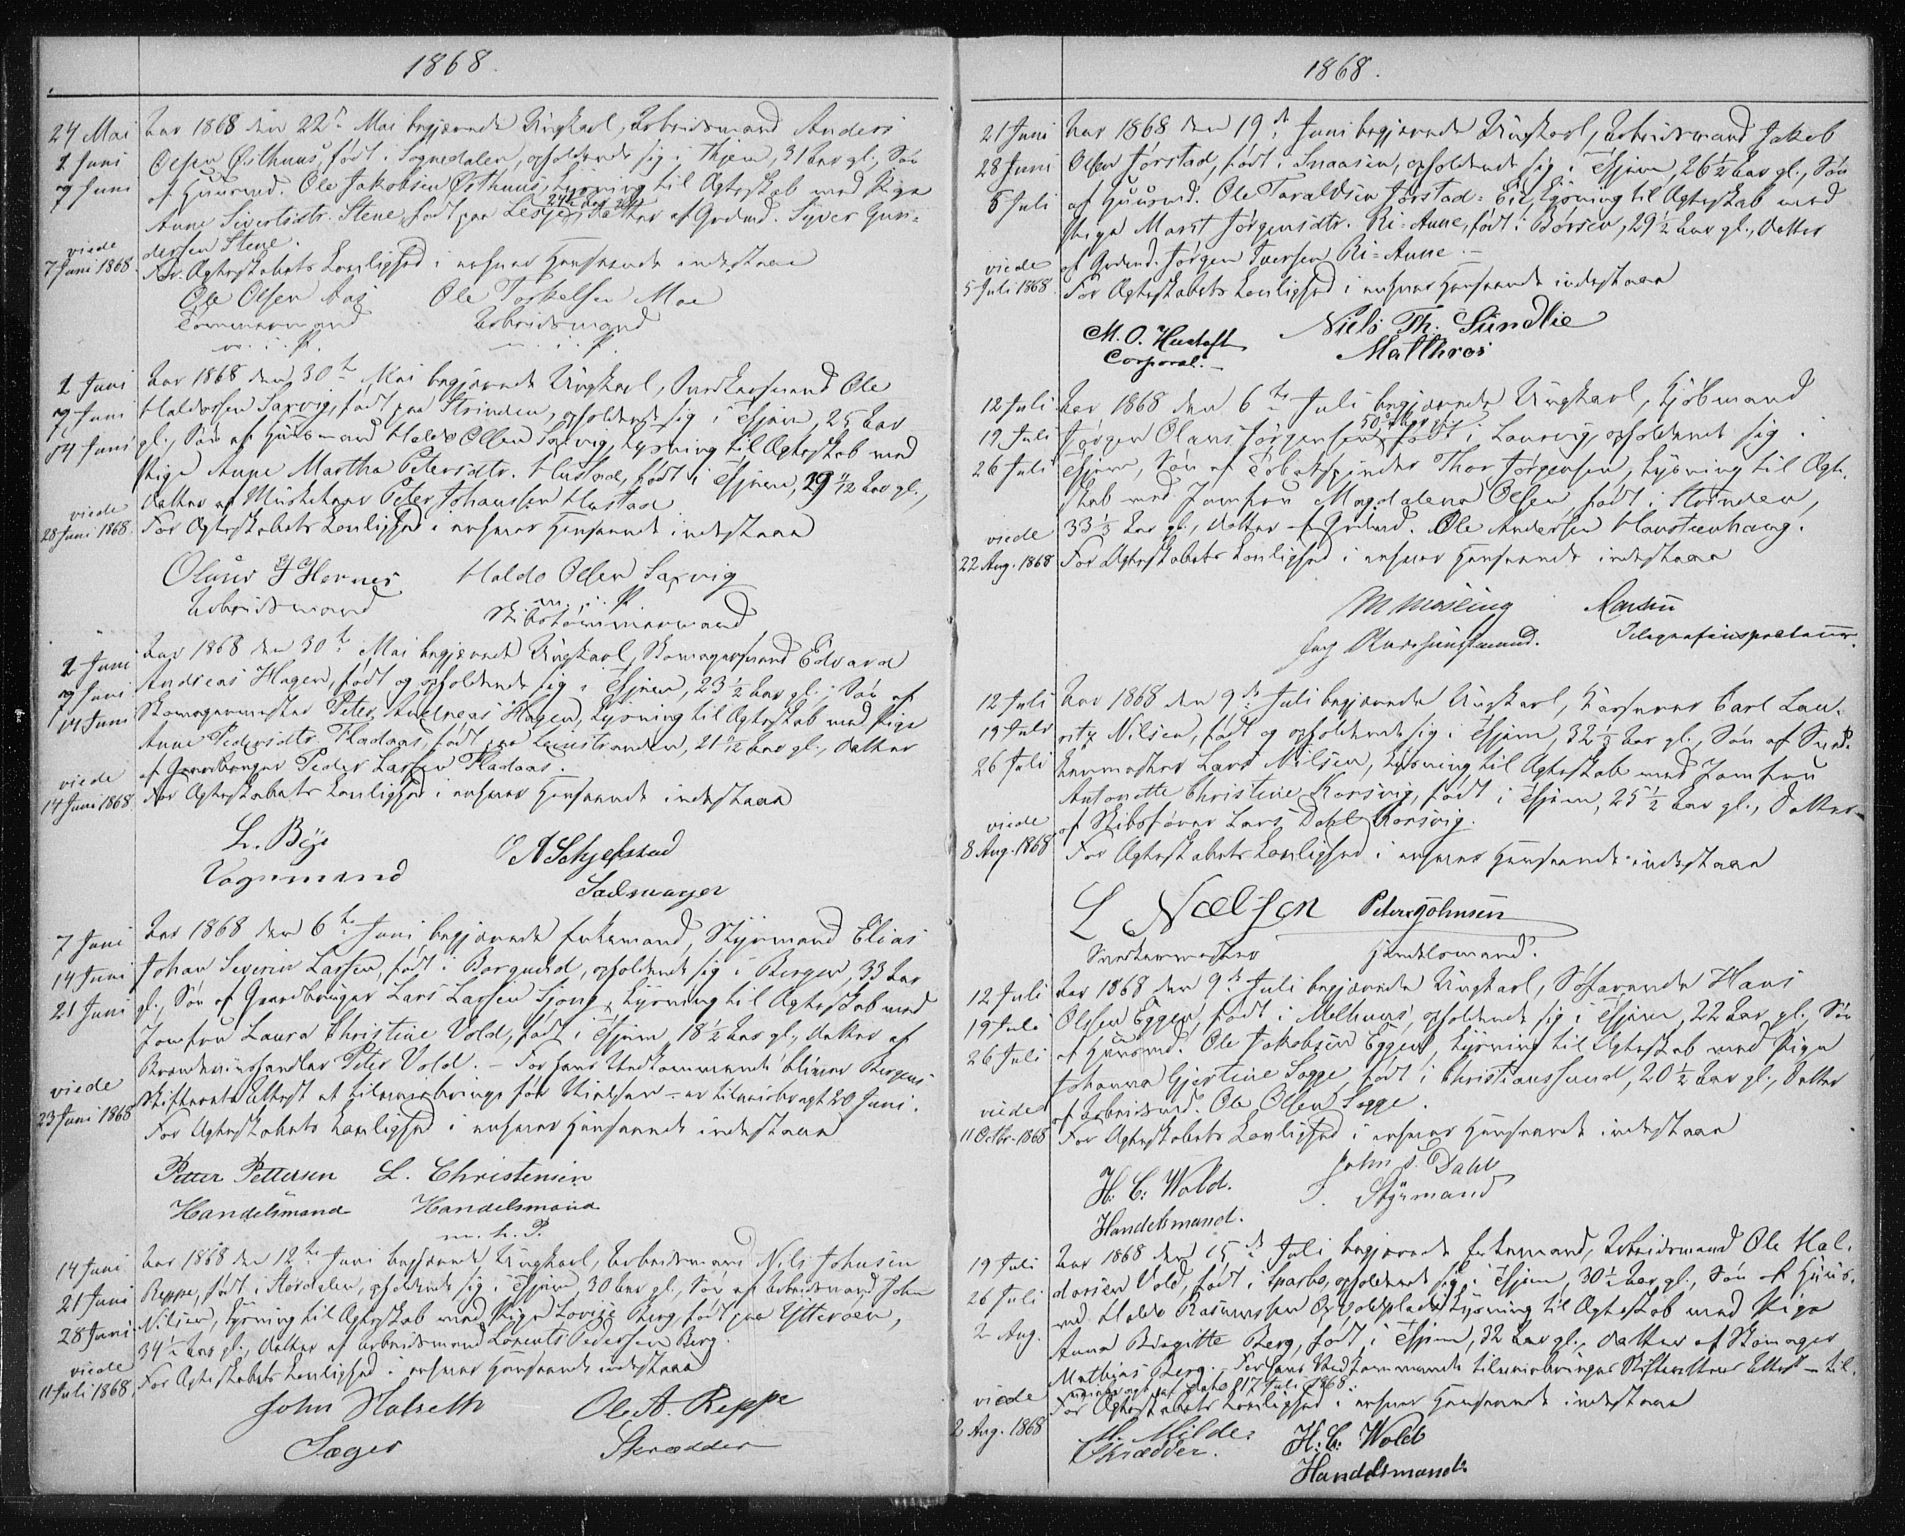 1868.
24 Mai
1 Juni
7 Juni
viede
7 Juni 1868
Aar 1868 den 22de Mai begjærede Ungkarl, Arbeidsmand Anders
Olsen Østhuus, født i Sognedalen, opholdende sig i Thjem, 31 Aar gl., Søn
af Huusmd. Ole Jakobsen Østhuus, Lysning til Ægteskab med Pige
Anne Sivertsdtr. Stene, født paa Lesje, 24 Aar gl., Datter af Grdmd. Syver Gun-
dersen Stene.
For Ægteskabets Lovlighed i enhver Henseende indestaae
Ole Olsen Aas Ole Toskelsen Moe
Tømmermand Arbeidsmand
m. i. P. m. i. P.
1 Juni
7 Juni
14 Juni
viede
28 Juni 1868
Aar 1868 den 30te Mai begjærede Ungkarl, Snedkersvend Ole
Haldosen Saxvig, født paa Strinden, opholdende sig i Thjem, 25 Aar
gl., Søn af Huusmand Haldo Olsen Saxvig, Lysning til Ægteskab med
Pige Anne Martha Petersdtr. Hustad, født i Thjem, 29 1/12 Aar gl.,
Datter af Musketeer Peter Johansen Hustad
For Ægteskabets Lovlighed i enhver Henseende indestaae
Olaus J Hernes Haldo Olsen Saxvig
Arbeidsmand m. i. P.
Skibstømmermand
1 Juni
7 Juni
14 Juni
viede
14 Juni 1868
Aar 1868 den 30te Mai begjærede Ungkarl, Skomagersvend Edvard
Andreas Hagen, født og opholdende sig i Thjem, 23 1/2 Aar gl., Søn af
Skomagermester Peter Andreas Hagen, Lysning til Ægteskab med Pige
Anne Pedersdtr. Fladaas, født paa Leinstranden, 21 Aar gl., Datter
af Gaardbruger Peder Larsen Fladaas.
For Ægteskabets Lovlighed i enhver Henseende indestaae
L. Bye O A Schjefstad
Vognmand Sadlmager
7 Juni
14 Juni
21 Juni
viede
23 Juni 1868
Aar 1868 den 6te Juni begjærede Enkemand, Styrmand Elias
Johan Severin Larsen, født i Borgund, opholdende sig i Bergen, 33 Aar
gl., Søn af Gaardbruger Lars Larsen Sjong, Lysning til Ægteskab med
Jomfru Laura Christine Vold, født i Thjem, 18 1/2 Aar gl., Datter af
Brændeviinshandler Peter Vold. – For hans Vedkommende bliver Bergens
Skifterets Attest at tilveiebringe før Vielsen – er tilveiebragt 20 Juni.
For Ægteskabets Lovlighed i enhver Henseende indestaae
Petter Pettersen L. Christensen
Handelsmand Handelsmand
m. h. P.
14 Juni
21 Juni
28 Juni
viede
11 Juli 1868
Aar 1868 den 12te Juni begjærede Ungkarl, Arbeidsmand Nils Johnsen
Reppe, født i Størdalen, opholdende sig i Thjem, 30 Aar gl., Søn af Arbeidsmand John
Nilsen, Lysning til Ægteskab med Pige Lovise Berg, født paa Ytterøen,
34 1/2 Aar gl., Datter af Arbeidsmand Lorents Pedersen Berg.
For Ægteskabets Lovlighed i enhver Henseende indestaae
John Halseth Ole A. Reppe
Sæger Skrædder
1868.
21 Juni
28 Juni
5 Juli
viede
5 Juli 1868
Aar 1868 den 19de Juni begjærede Ungkarl, Arbeidsmand Jakob
Olsen Jørstad, født i Snaasen, opholdende sig i Thjem, 26 1/2 Aar gl., Søn
af Huusmd. Ole Taraldsen Jørstad-Eie, Lysning til Ægteskab med
Pige Marit Jørgensdtr. Ri-Aune, født i Børsen, 29 1/2 Aar gl., Datter
af Grdmd. Jørgen Iversen Ri-Aune –
For Ægteskabets Lovlighed i enhver Henseende indestaae
M. O. Hustoft Niels Th. Sundlie
Corporal. – Mathros
12 Juli
19 Juli
26 Juli
viede
22 Aug. 1868
Aar 1868 den 6te Juli begjærede Ungkarl, Kjøbmand
Jørgen Olaus Jørgensen, 50 Aar gl., født i Laurvig, opholdende sig i
Thjem, Søn af Tobakspinder Thor Jørgensen, Lysning til Ægte-
skab med Jomfru Magdalena Olsen, født i Strinden,
33 1/3 Aar gl., Datter af Grdmd. Ole Andersen Havsteenhaug.
For Ægteskabets Lovlighed i enhver Henseende indestaae
M Møsling
Telegrafinspecteur.
12 Juli
19 Juli
26 Juli
viede
8 Aug. 1868
Aar 1868 den 9de Juli begjærede Ungkarl, Kasserer Carl Lau-
ritz Nilsen, født og opholdende sig i Thjem, 32 1/3 Aar gl., Søn af Sned-
kermester Lars Nilsen, Lysning til Ægteskab med Jomfru
Antonette Christine Korsvig, født i Thjem, 25 1/2 Aar gl., Datter
af Skibsfører Lars Dahl Korsvig.
For Ægteskabets Lovlighed i enhver Henseende indestaae
L Nælsen Peter Johnsen
Snedkermester Handelsmand.
12 Juli
19 Juli
26 Juli
viede
11 Octbr. 1868
Aar 1868 den 9de Juli begjærede Ungkarl, Søfarende Hans
Olsen Eggen, født i Melhuus, opholdende sig i Thjem, 22 Aar gl., Søn
af Huusmd. Ole Jakobsen Eggen, Lysning til Ægteskab med Pige
Johanna Gjertine Sogge, født i Christianssund, 20 1/2 Aar gl., Datter
af Arbeidsmd. Ole Olsen Sogge.
For Ægteskabets Lovlighed i enhver Henseende indestaae
H. C. Wold. John S. Dahl
Handelsmand. Styrmand
19 Juli
26 Juli
2 Aug.
viede
2 Aug. 1868
Aar 1868 den 15de Juli begjærede Enkemand, Arbeidsmand Ole Hal-
dorsen Vold, født i Sparbo, opholdende sig i Thjem, 30 1/2 Aar gl., Søn af Huus-
md. Haldo Rasmussen Opvoldplads, Lysning til Ægteskab med Pige
Anna Birgitte Berg, født i Thjem, 32 Aar gl., Datter af Skomager
Mathias Berg. – For hans Vedkommende tilveiebringes Skifterettens Attest – til-
veiebragt dat. 17 Juli 1868.
For Ægteskabets Lovlighed i enhver Henseende indestaae
M. Milde H. C. Wold
Skrædder. Handelsmand